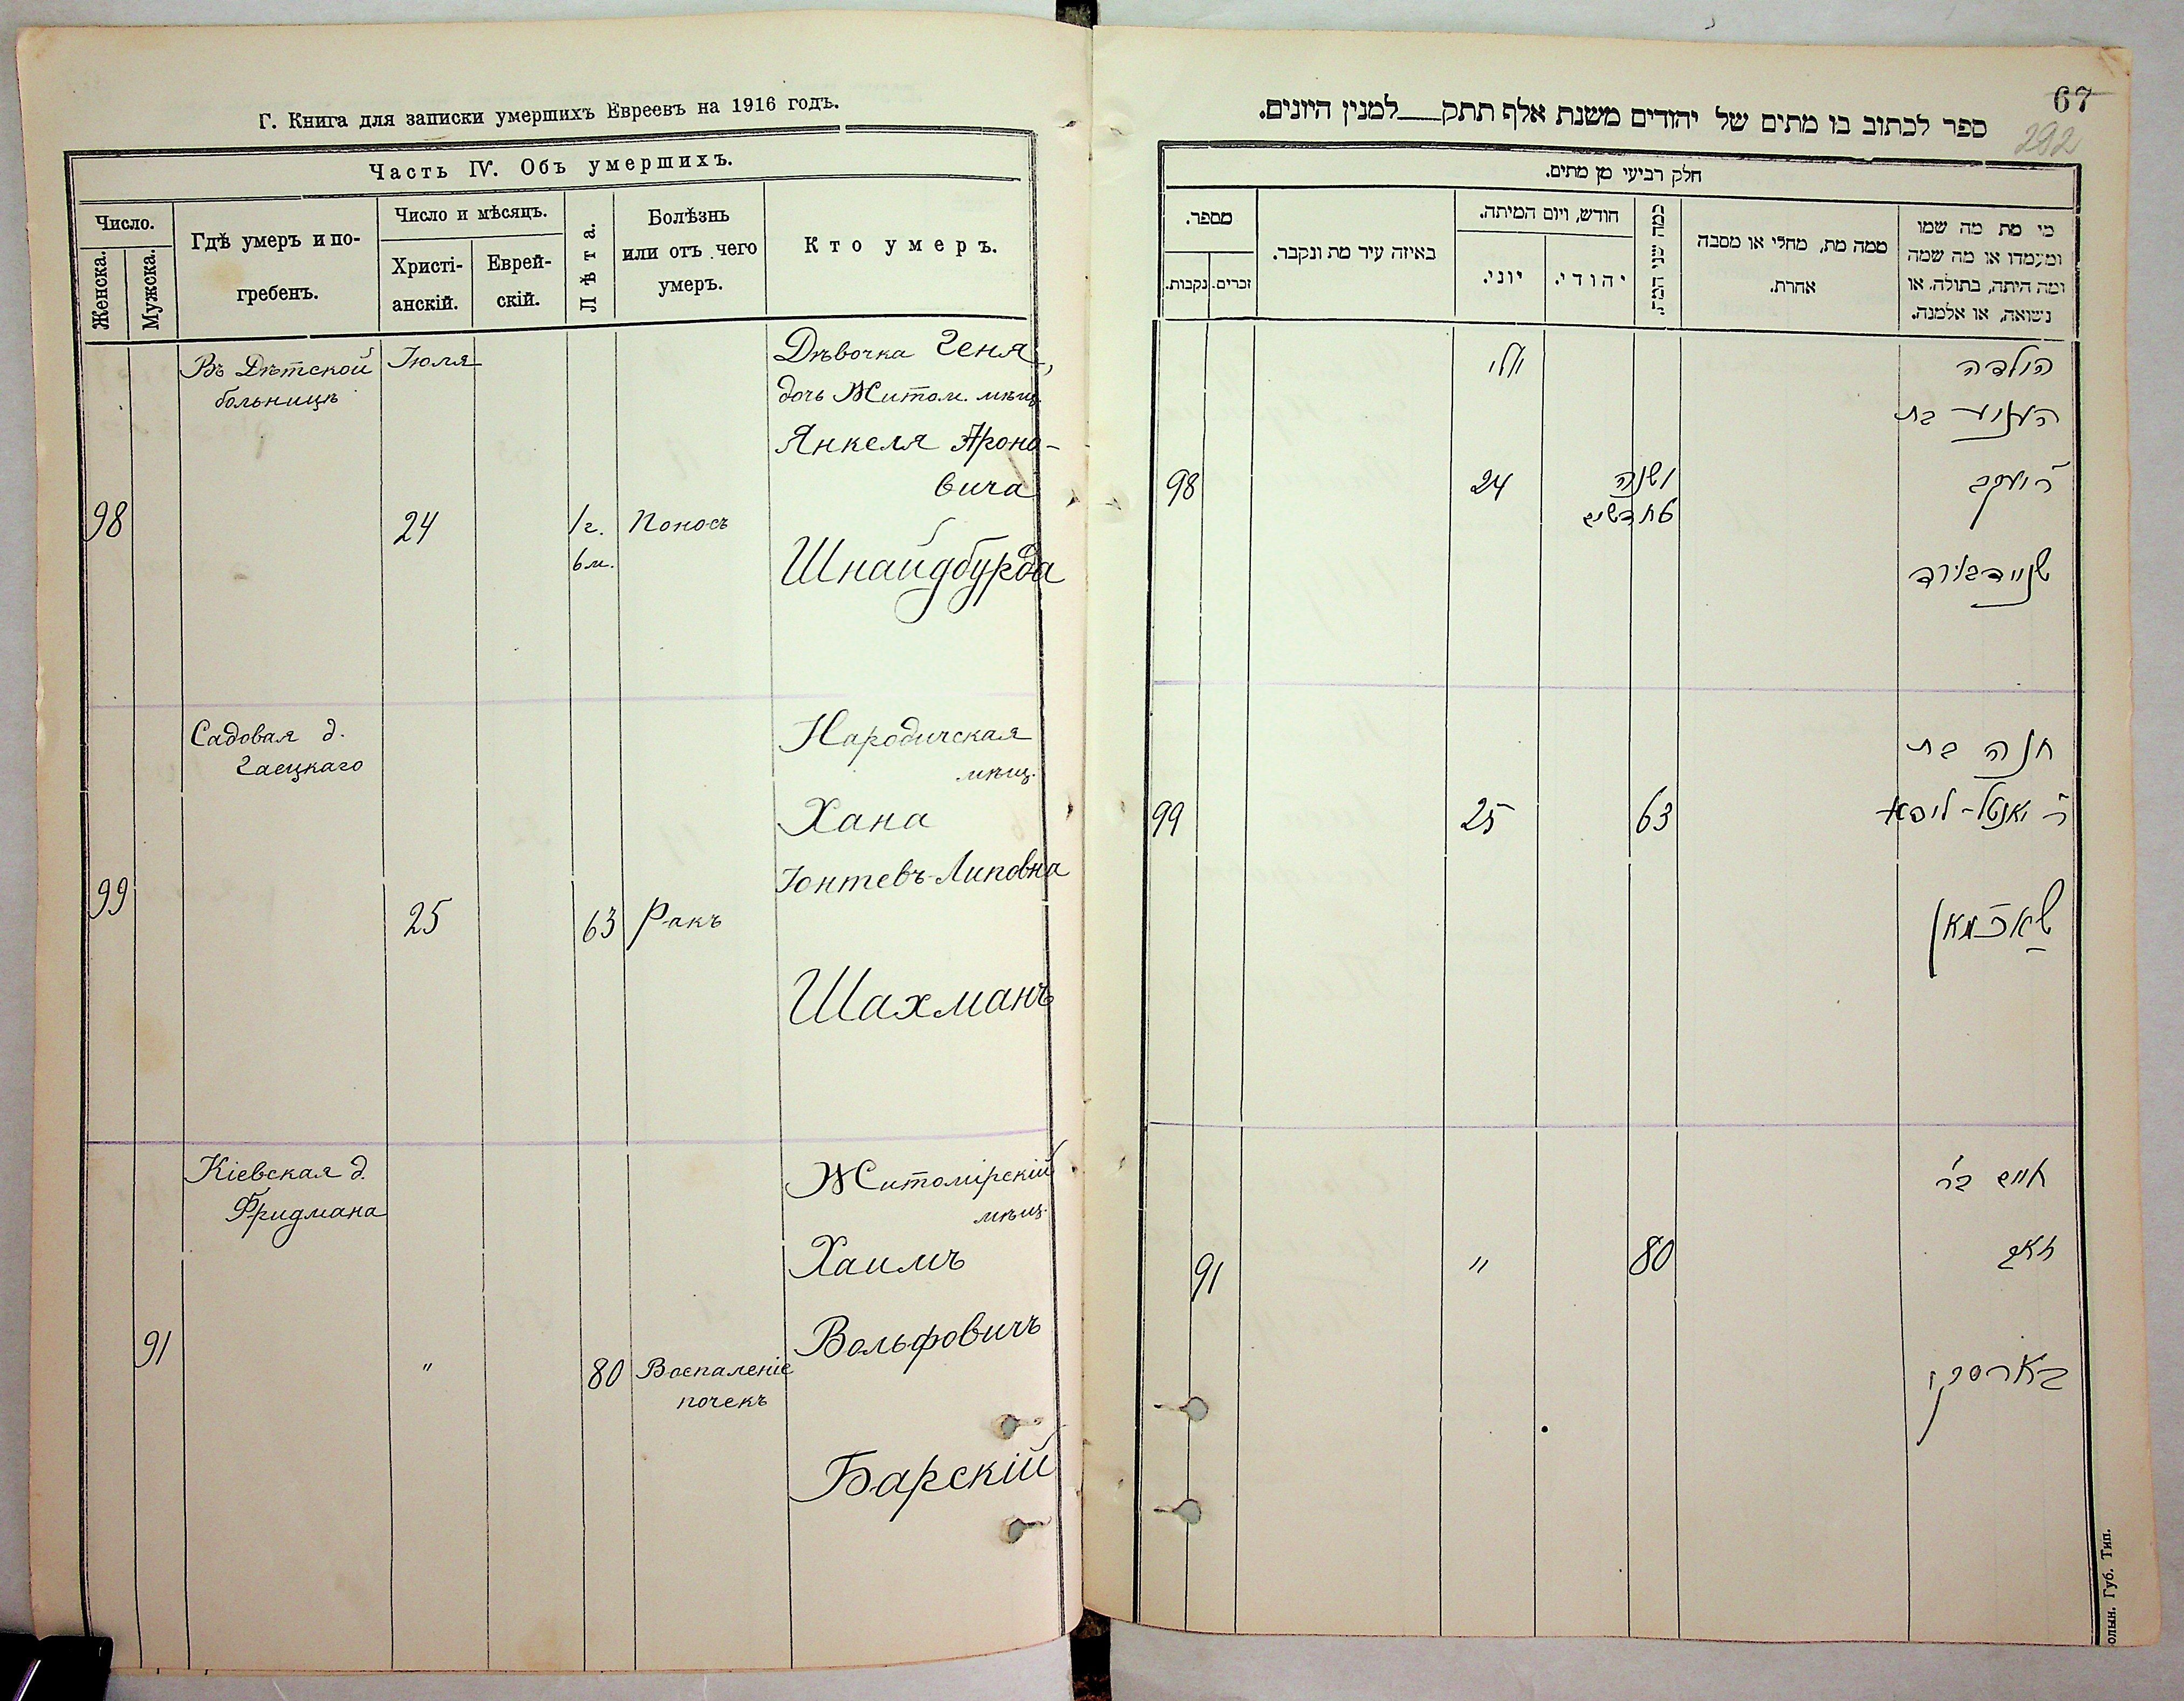 Г. Книга для записки умершихъ Евреевъ на 1916 годъ.
Часть IV. Объ умершихъ.
Число.
Женска.
Мужска.
Гдѣ умеръ и по-
гребенъ.
Число и мѣсяцъ.
Христі-
анскій.
Еврей-
скій.
Лѣта.
Болѣзнь
или отъ чего
умеръ.
Кто умеръ.
Въ Дѣтской
больницѣ
Іюля
Дѣвочка Геня,
дочь Житом. мѣщ.
Янкеля Ароно-
вича
98
24
1 г.
6 м.
Поносъ
Шнайдбурда
Садовая д.
Гаецкаго
Народичская
мѣщ.
Хана
Іонтевъ-Липовна
99
25
63
Ракъ
Шахманъ
Кіевская д.
Фридмана
Житомірскій
мѣщ.
Хаимъ
Вольфовичъ
91
"
80
Воспаленіе
почекъ
Барскій
67
292
ספר לכתוב בו מתים של יהודים משנת אלף תתק למנין היונים.
חלק רביעי מן מתים.
מי מת מה שמו
ומעמדו או מה שמה
ומה היתה, בתולה, או
נשואה, או אלמנה.
ממה מת, מחלי או מסבה
אחרת.
כמה שני המת.
חודש, ויום המיתה.
יהודי.
יוני.
באיזה עיר מת ונקבר.
מספר.
זכרים.
נקבות.
הילדה
יולי
בת
ר' יעקב
98
24
1 שנה
חדשים
שניידבורד
חנה בת
ר' יאנטל-ליפא
99
25
63
שאכמאן
חיים בר'
זאב
91
"
80
בארסקי
олын. Губ. Тип.